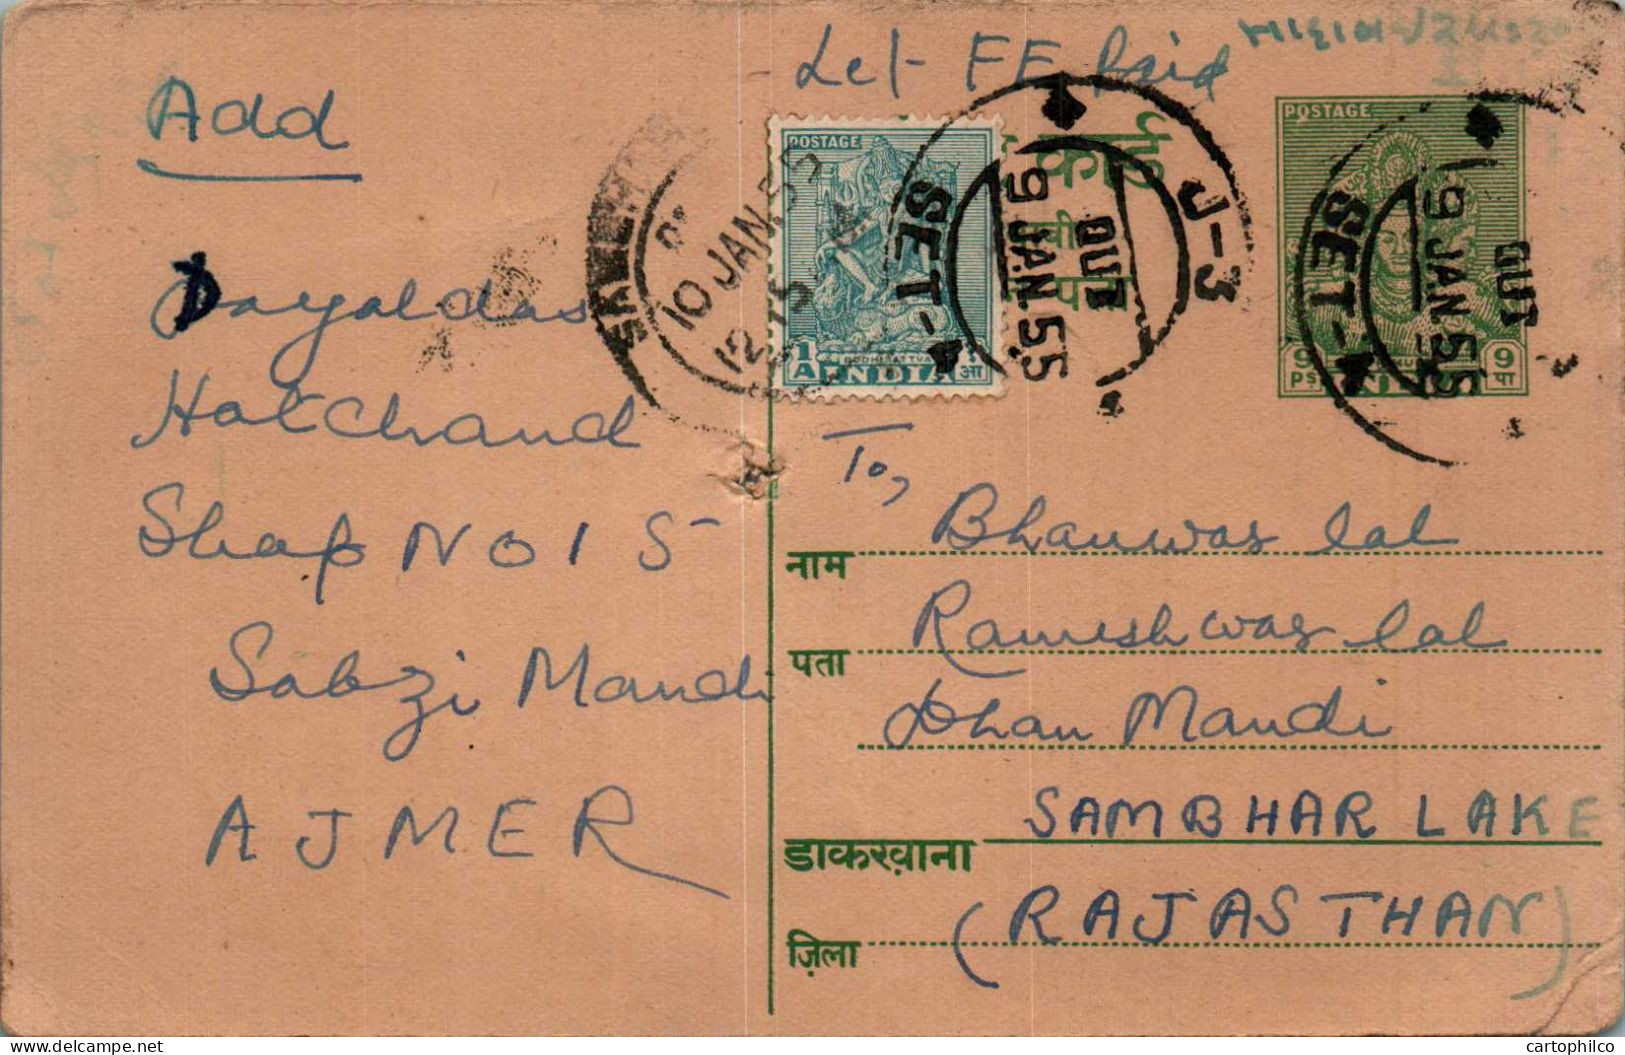 Let FE Paid
Add
POSTAGE
1 A
BODHISATTVA
INDIA
POSTAGE
9 PS
9 पा
SET-
OUT
9 JAN.55
J-3
SET-
OUT
9 JAN.55
10 JAN.55
Dayaldas
Hotchand
Shop NO 15
Sabzi Mandi
AJMER
To,
नाम Bhanwar lal
पता Rameshwar lal
Dhan Mandi
डाकख़ाना SAMBHAR LAKE
ज़िला (RAJASTHAN)
cartophilco